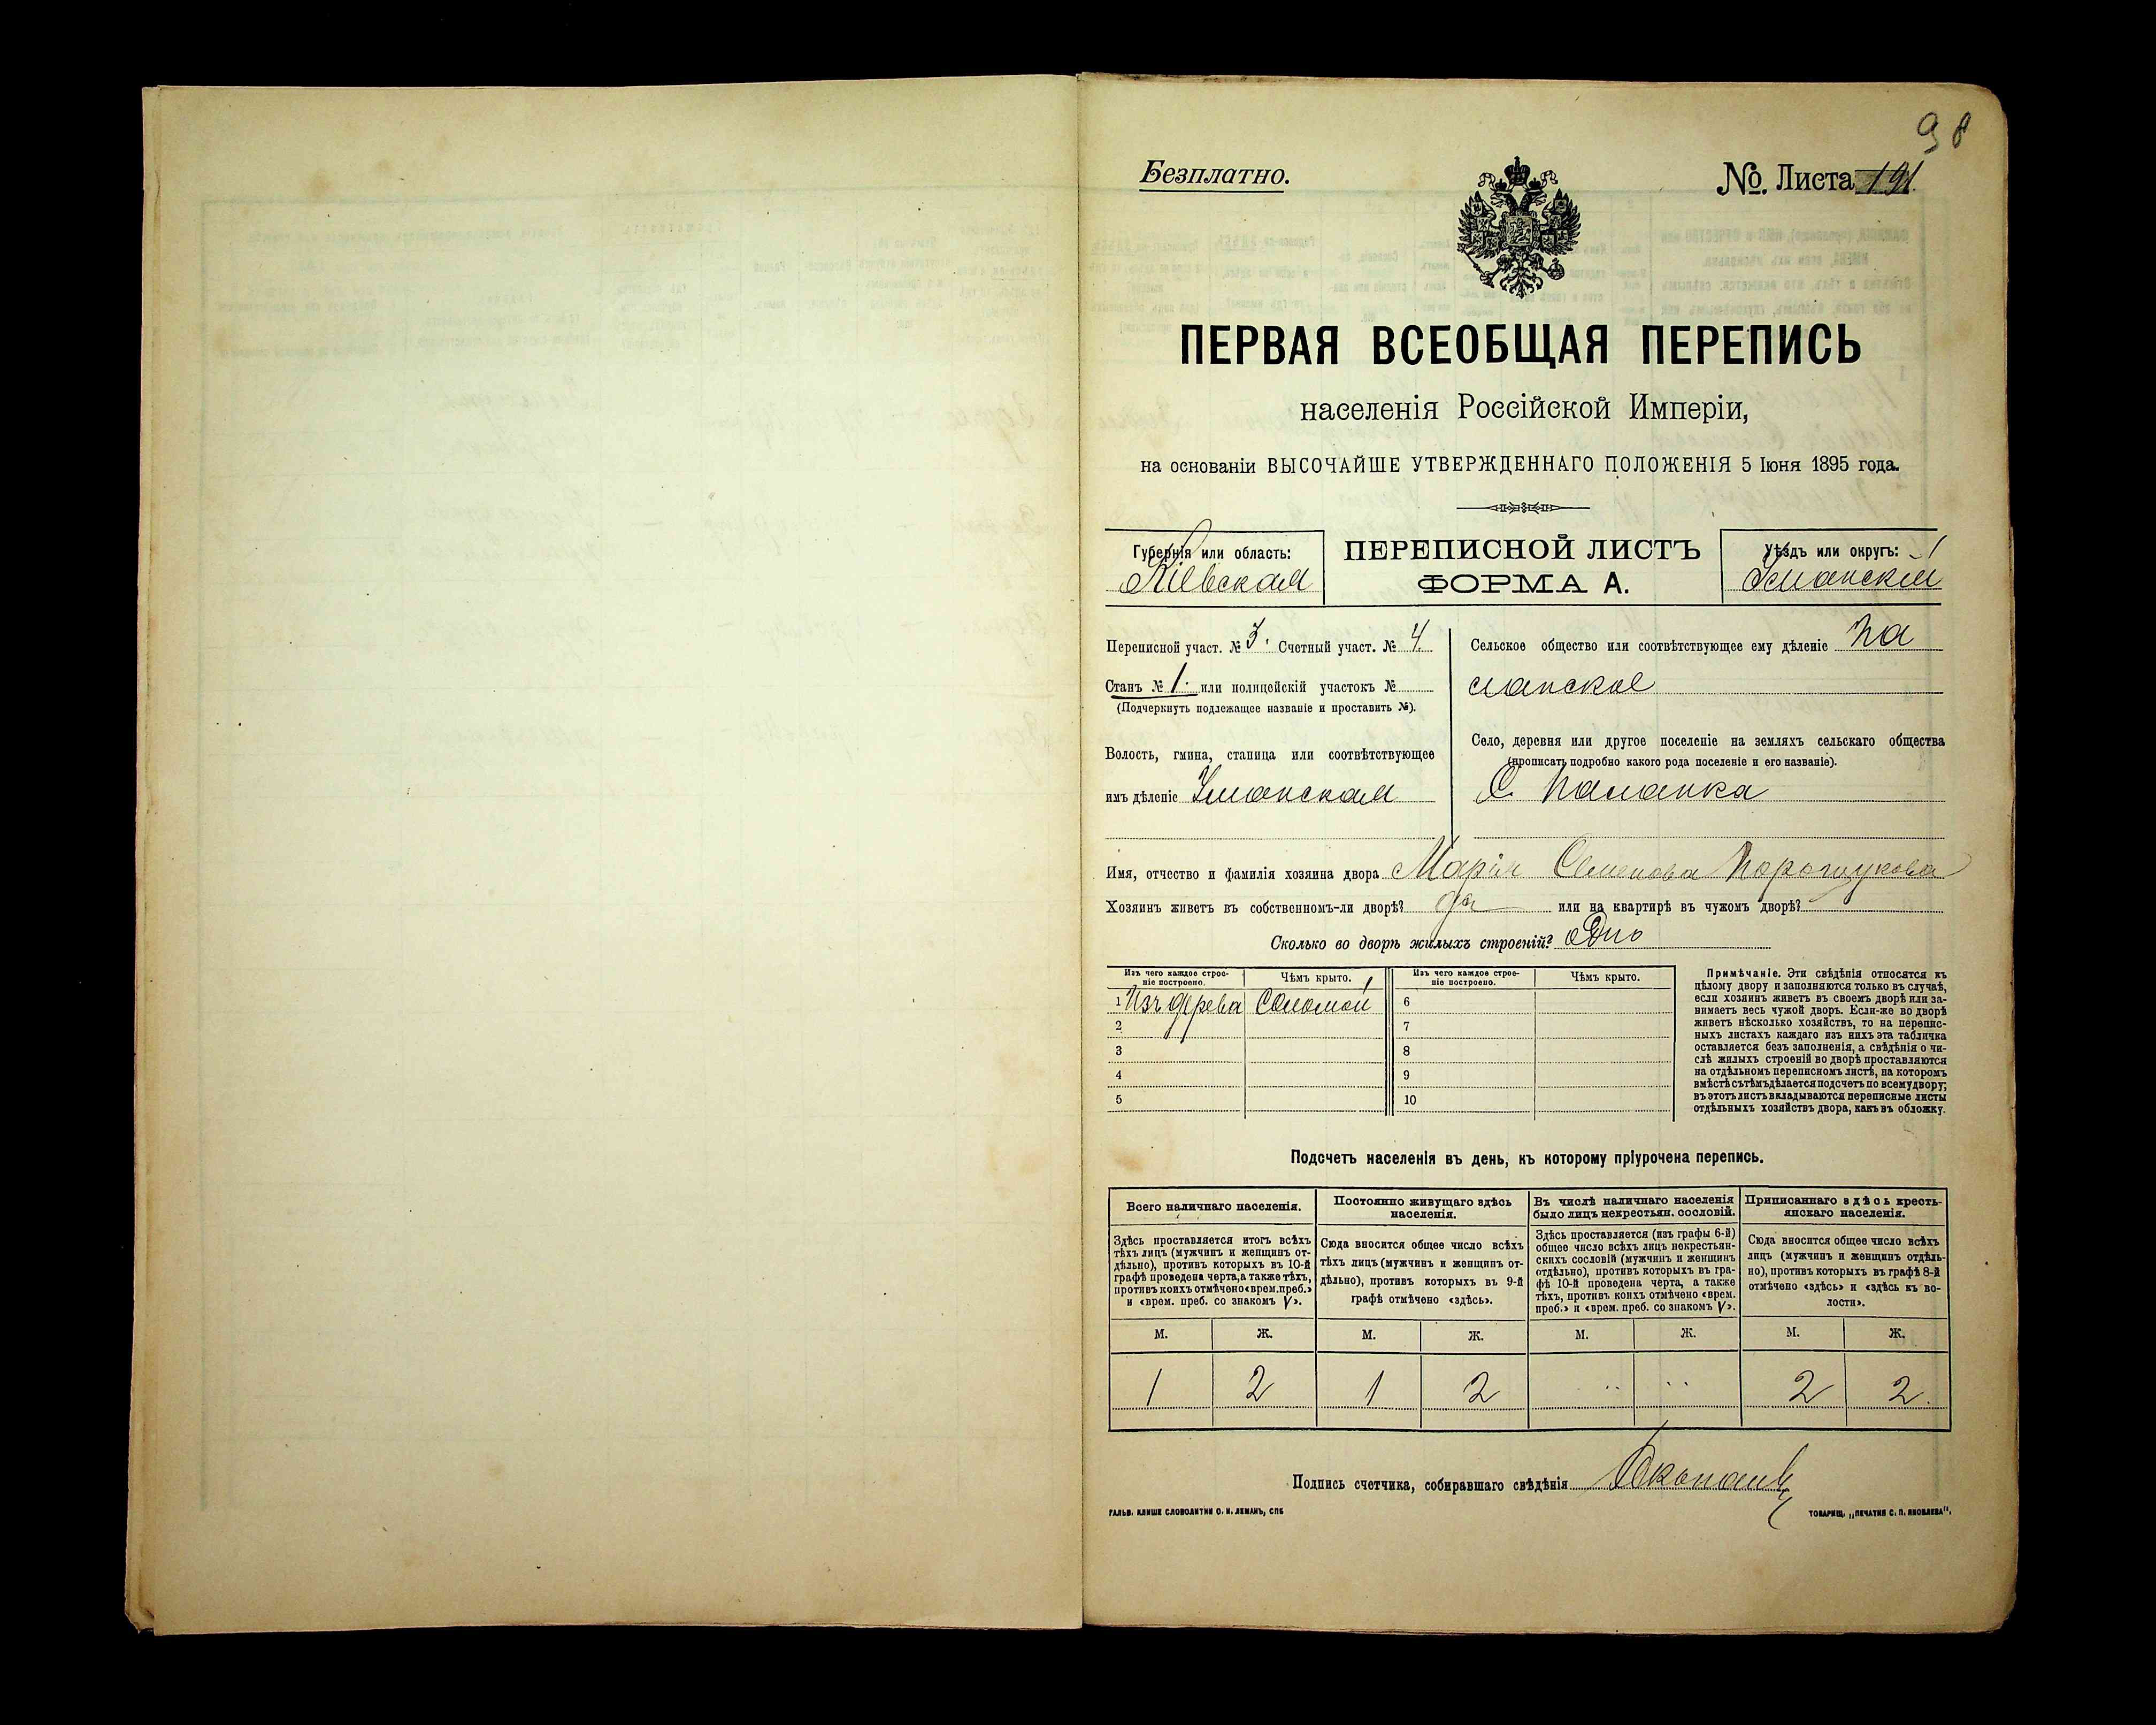 98
Безплатно.
№. Листа 191.
ПЕРВАЯ ВСЕОБЩАЯ ПЕРЕПИСЬ
населенія Россійской Имперіи,
на основаніи ВЫСОЧАЙШЕ УТВЕРЖДЕННАГО ПОЛОЖЕНІЯ 5 Іюня 1895 года.
Губернія или область:
Кіевская
ПЕРЕПИСНОЙ ЛИСТЪ
ФОРМА А.
Уѣздъ или округъ:
Уманскій
Переписной участ. № 3. Счетный участ. № 4.
Станъ № 1. или полицейскій участокъ №
(Подчеркнуть подлежащее названіе и проставить №).
Волость, гмина, станица или соотвѣтствующее
имъ дѣленіе Уманская
Сельское общество или соотвѣтствующее ему дѣленіе Па
ланское
Село, деревня или другое поселеніе на земляхъ сельскаго общества
(прописать подробно какого рода поселеніе и его названіе).
С. Паланка
Имя, отчество и фамилія хозяина двора Марія Семенова Порощукова
Хозяинъ живетъ въ собственномъ-ли дворѣ? да или на квартирѣ въ чужомъ дворѣ?
Сколько во дворѣ жилыхъ строеній? Одно
Изъ чего каждое строе-
ніе построено.
Чѣмъ крыто.
Изъ чего каждое строе-
ніе построено.
Чѣмъ крыто.
1 Изъ дерева Соломой 6
2 7
3 8
4 9
5 10
Примѣчаніе. Эти свѣдѣнія относятся къ
цѣлому двору и заполняются только въ случаѣ,
если хозяинъ живетъ въ своемъ дворѣ или за-
нимаетъ весь чужой дворъ. Если-же во дворѣ
живетъ нѣсколько хозяйствъ, то на перепис-
ныхъ листахъ каждаго изъ нихъ эта табличка
оставляется безъ заполненія, а свѣдѣнія о чи-
слѣ жилыхъ строеній во дворѣ проставляются
на отдѣльномъ переписномъ листѣ, на которомъ
вмѣстѣ съ тѣмъ дѣлается подсчетъ по всему двору;
въ этотъ листъ вкладываются переписные листы
отдѣльныхъ хозяйствъ двора, какъ въ обложку.
Подсчетъ населенія въ день, къ которому пріурочена перепись.
Всего наличнаго населенія.
Здѣсь проставляется итогъ всѣхъ
тѣхъ лицъ (мужчинъ и женщинъ от-
дѣльно), противъ которыхъ въ 10-й
графѣ проведена черта, а также тѣхъ,
противъ коихъ отмѣчено «врем. преб.»
и «врем. преб. со знакомъ V».
Постоянно живущаго здѣсь
населенія.
Сюда вносится общее число всѣхъ
тѣхъ лицъ (мужчинъ и женщинъ от-
дѣльно), противъ которыхъ въ 9-й
графѣ отмѣчено «здѣсь».
Въ числѣ наличнаго населенія
было лицъ некрестьян. сословій.
Здѣсь проставляется (изъ графы 6-й)
общее число всѣхъ лицъ некрестьян-
скихъ сословій (мужчинъ и женщинъ
отдѣльно), противъ которыхъ въ гра-
фѣ 10-й проведена черта, а также
тѣхъ, противъ коихъ отмѣчено «врем.
преб.» и «врем. преб. со знакомъ V».
Приписаннаго здѣсь кресть-
янскаго населенія.
Сюда вносится общее число всѣхъ
лицъ (мужчинъ и женщинъ отдѣль-
но), противъ которыхъ въ графѣ 8-й
отмѣчено «здѣсь» и «здѣсь къ во-
лости».
М. Ж. М. Ж. М. Ж. М. Ж.
1 2 1 2 " " 2 2
Подпись счетчика, собиравшаго свѣдѣнія
ГАЛЬВ. КЛИШЕ СЛОВОЛИТНИ О. И. ЛЕМАНЪ, СПБ
ТОВАРИЩ. „ПЕЧАТНЯ С. П. ЯКОВЛЕВА".